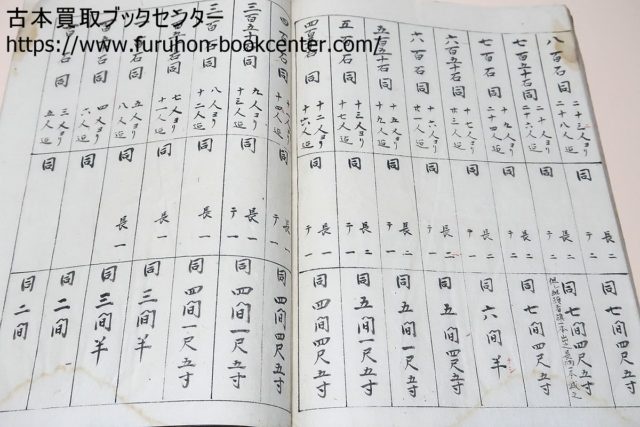 古本買取ブックセンター
https://www.furuhon-bookcenter.com/
八百石 同
二十三人ヨリ
二十八人迄
同
長二
テ二
同 七間四尺五寸
七百五十石 同
二十人ヨリ
二十六人迄
同
長二
テ二
同 七間四尺五寸
七百石 同
二十四人迄
同
長二
テ二
同 七間四尺五寸
六百五十石 同
十七人ヨリ
廿三人迄
同
長二
テ一
同 六間半
六百石 同
十六人ヨリ
廿一人迄
同
長二
テ一
同 五間四尺五寸
五百五十石 同
十五人ヨリ
十九人迄
同
長二
テ一
同 五間一尺五寸
五百石 同
十三人ヨリ
十七人迄
同
長二
テ一
同 五間一尺五寸
同
十二人ヨリ
十六人迄
同
長一
テ一
同 四間四尺五寸
四百石 同
十人ヨリ
十四人迄
同
長一
テ一
同 四間四尺五寸
三百五十石 同
九人ヨリ
十三人迄
同
長一
テ一
同 四間一尺五寸
三百石 同
八人ヨリ
十二人迄
同
長一
同 四間一尺五寸
同
七人ヨリ
十一人迄
同
長一
同 三間半
同
五人ヨリ
八人迄
同
長一
同 三間半
同
四人ヨリ
六人迄
同
同 二間
同
三人ヨリ
五人迄
同
同 二間